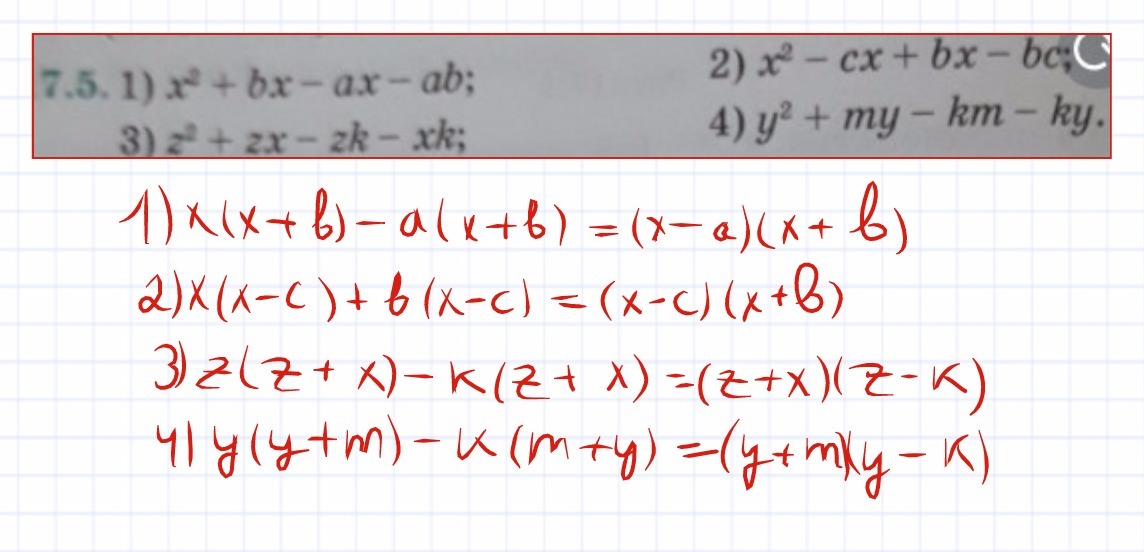 7.5. 1) x² + bx – ax – ab; 2) x² – cx + bx – bc;
3) z² + zx – zk – xk; 4) y² + my – km – ky.
1) x(x+b) – a(x+b) = (x–a)(x+b)
2) x(x–c) + b(x–c) = (x–c)(x+b)
3) z(z+x) – k(z+x) = (z+x)(z–k)
4) y(y+m) – k(m+y) = (y+m)(y–k)